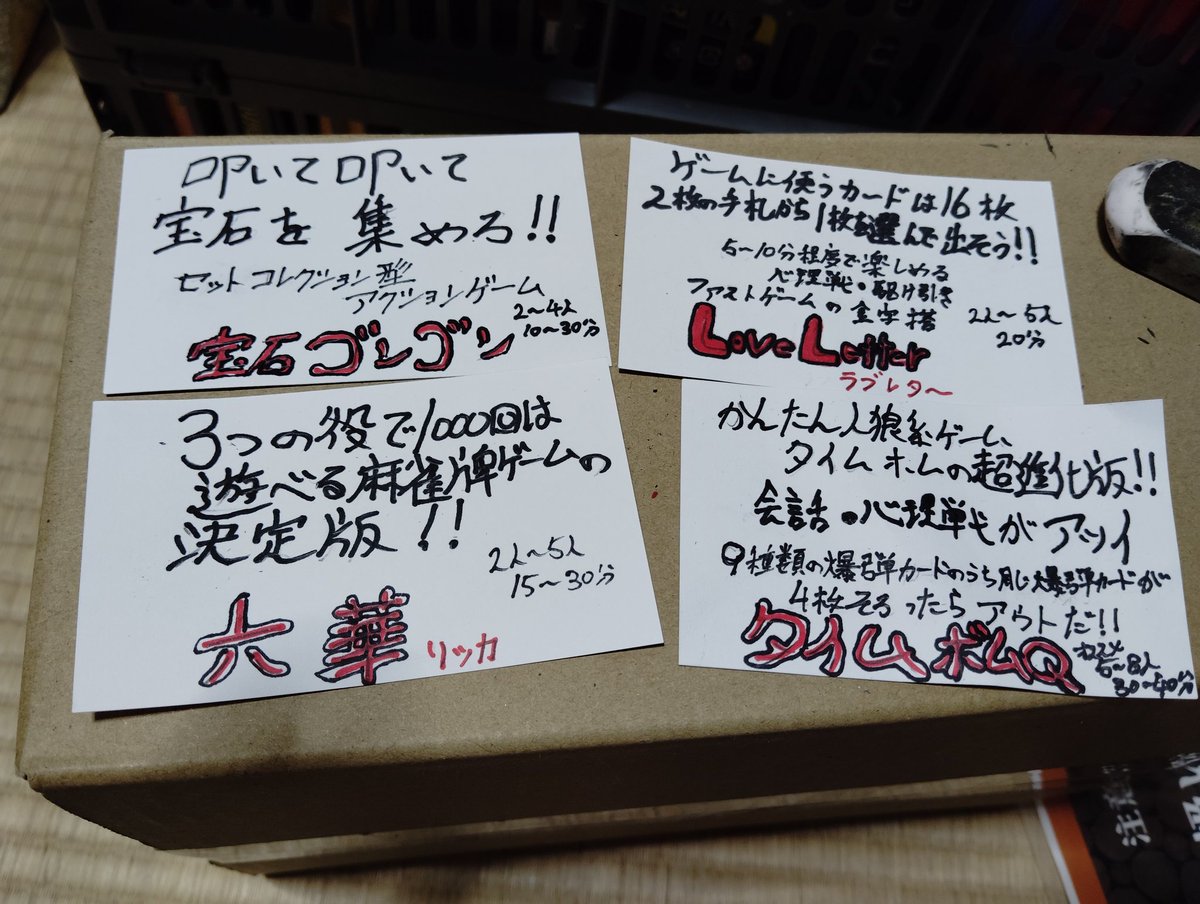 叩いて叩いて
宝石を集めろ!!
セットコレクション型
アクションゲーム
2〜4人
10〜30分
宝石ゴンゴン
ゲームに使うカードは16枚
2枚の手札から1枚を選んで出そう!!
5〜10分程度で楽しめる
心理戦・駆け引き
ファストゲームの金字塔
2人〜5人
20分
Love Letter
ラブレター
3つの役で1000回は
遊べる麻雀牌ゲームの
決定版!!
2人〜5人
15〜30分
六華 リッカ
かんたん人狼系ゲーム、
タイムボムの超進化版!!
会話・心理戦がアツイ
9種類の爆弾カードのうち同じ爆弾カードが
4枚そろったらアウトだ!!
タイムボムQ
6〜8人
30〜40分
注意